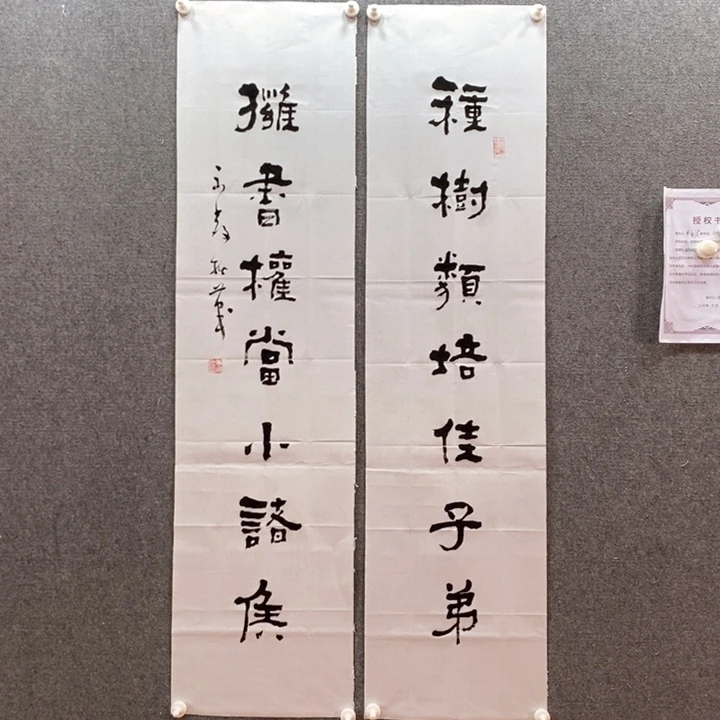 種樹類培佳子弟
擁書權當小諸侯
授权书